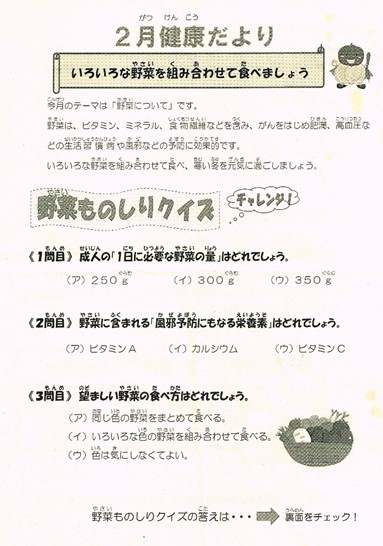 ２月健康だより
いろいろな野菜を組み合わせて食べましょう
今月のテーマは「野菜について」です。
野菜は、ビタミン、ミネラル、食物繊維などを含み、がんをはじめ肥満、高血圧な
どの生活習慣病や風邪などの予防に効果的です。
いろいろな野菜を組み合わせて食べ、寒い冬を元気に過ごしましょう。
野菜ものしりクイズ
チャレンジ！
《１問目》成人の「１日に必要な野菜の量」はどれでしょう。
（ア）２５０ｇ （イ）３００ｇ （ウ）３５０ｇ
《２問目》野菜に含まれる「風邪予防にもなる栄養素」はどれでしょう。
（ア）ビタミンＡ （イ）カルシウム （ウ）ビタミンＣ
《３問目》望ましい野菜の食べ方はどれでしょう。
（ア）同じ色の野菜をまとめて食べる。
（イ）いろいろな色の野菜を組み合わせて食べる。
（ウ）色は気にしなくてよい。
野菜ものしりクイズの答えは・・・ 裏面をチェック！